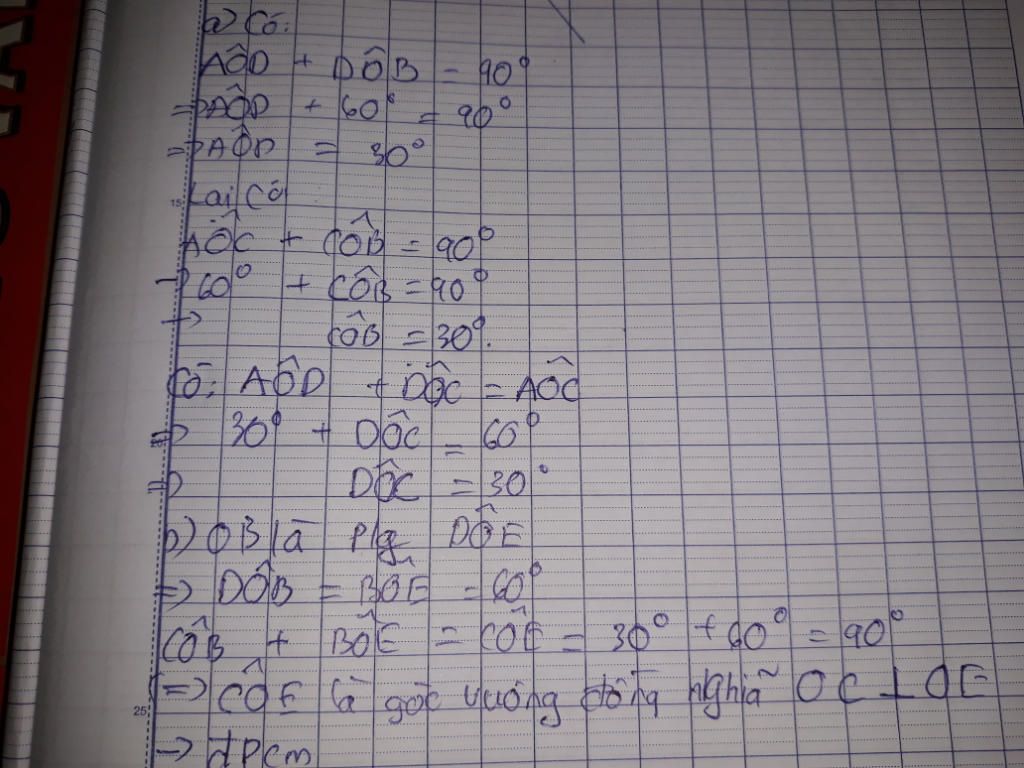 a) Có:
AÔD + DÔB = 90°
=> AÔD + 60° = 90°
=> AÔD = 30°
15 Lại Có
AÔC + CÔB = 90°
=> 60° + CÔB = 90°
-> CÔB = 30°.
Có: AÔD + DÔC = AÔC
=> 30° + DÔC = 60°
=> DÔC = 30°
b) OB là p/g DÔE
=> DÔB = BÔE = 60°
CÔB + BÔE = CÔE = 30° + 60° = 90°
=> CÔE là góc vuông đồng nghĩa OC ⊥ OE
25 -> đpcm